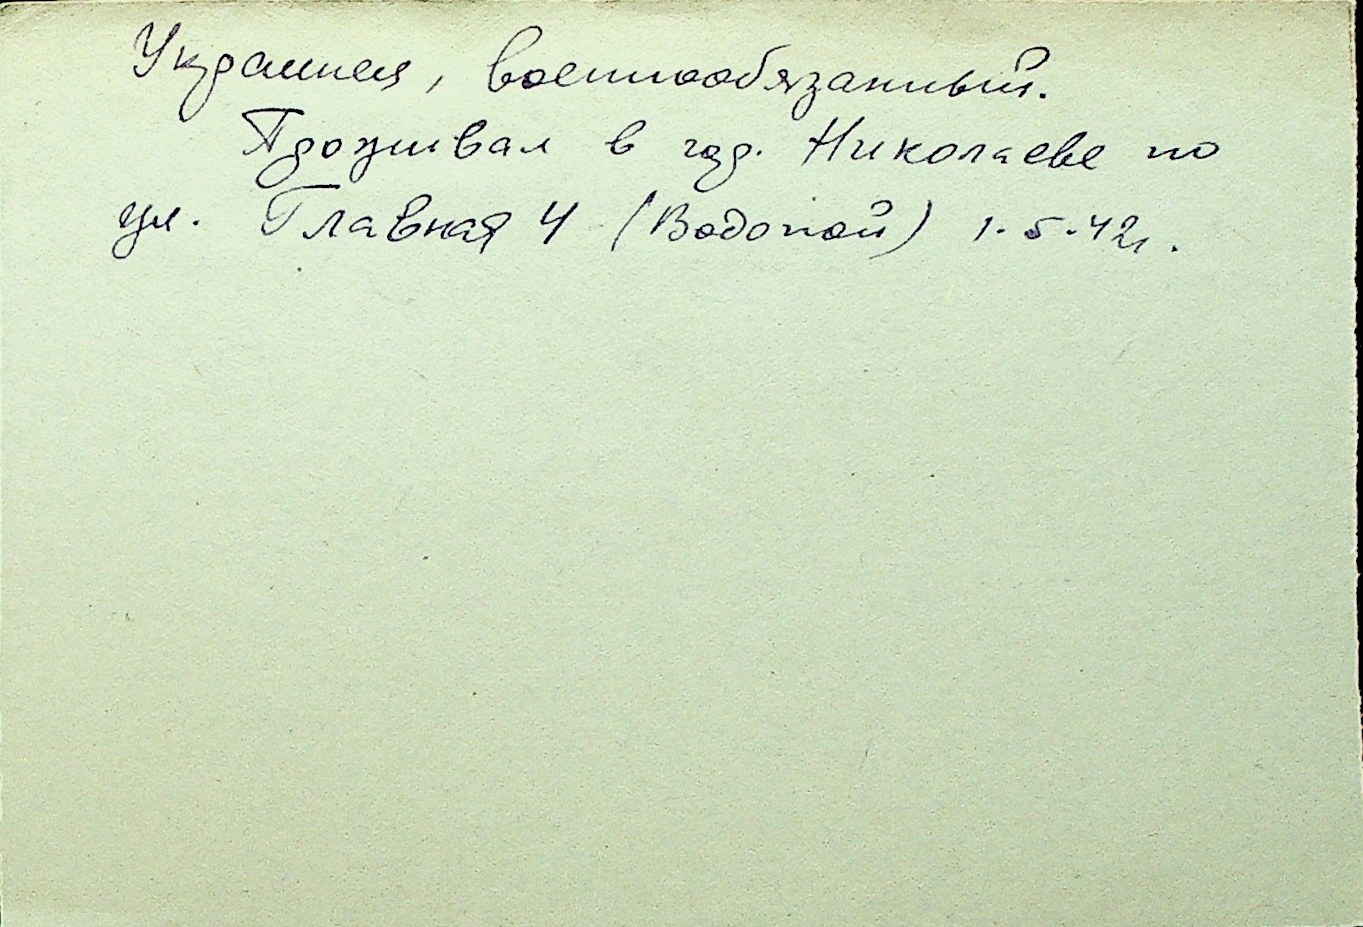 Украинец, военнообязанный.
Проживал в гор. Николаеве по
ул. Главная 4 (Водопой) 1.5.42г.